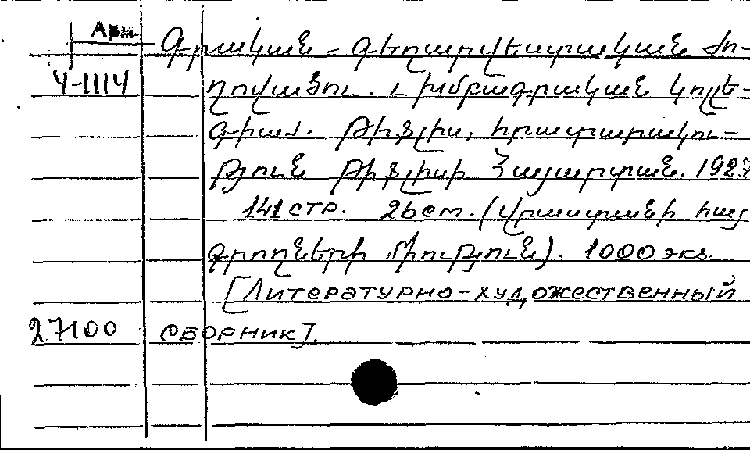 Арм
4-1114
Գրական-գեղարվեստական ժո-
ղովածու. Խմբագրական կոլե-
գիա. Թիֆլիս, հրատարակու-
թյուն Թիֆլիսի Հայարտան. 1927
141 стр. 26 ст. (Վրաստանի հայ
գրողների Միություն). 1000 экз.
[Литературно-художественный
27100 сборник].